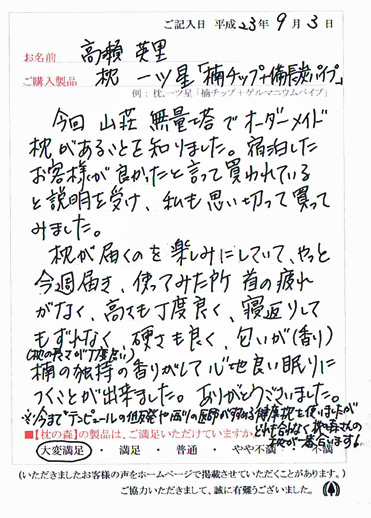 ご記入日 平成23年 9月 3日
お名前 高瀬 英里
ご購入製品 枕 一ツ星「楠チップ+備長炭パイプ」
例：枕.一ツ星「楠チップ＋ゲルマニウムパイプ」
今回 山荘 無量塔でオーダーメイド
枕があることを知りました。宿泊した
お客様が良かったと言って買われている
と説明を受け、私も思い切って買って
みました。
枕が届くのを楽しみにしていて、やっと
今週届き、使ってみた所 首の疲れ
がなく、高さも丁度良く、寝返りして
もずれなく 硬さも良く、匂いが(香り)
(枕の長さが丁度良い)
楠の独特の香りがして 心地良い眠りに
つくことが出来ました。ありがとうございました。
※今までテンピュールの低反発や の医師がすすめる健康枕を使いましたが
どれも合わなく 枕の森さんの
枕が一番合います!
■【枕の森】の製品は、ご満足いただけていますか
大変満足 ・ 満足 ・ 普通 ・ やや不満 ・ 不満
(いただきましたお客様の声をホームページで掲載させていただくことがあります。)
ご協力いただきまして、誠に有難うございました。